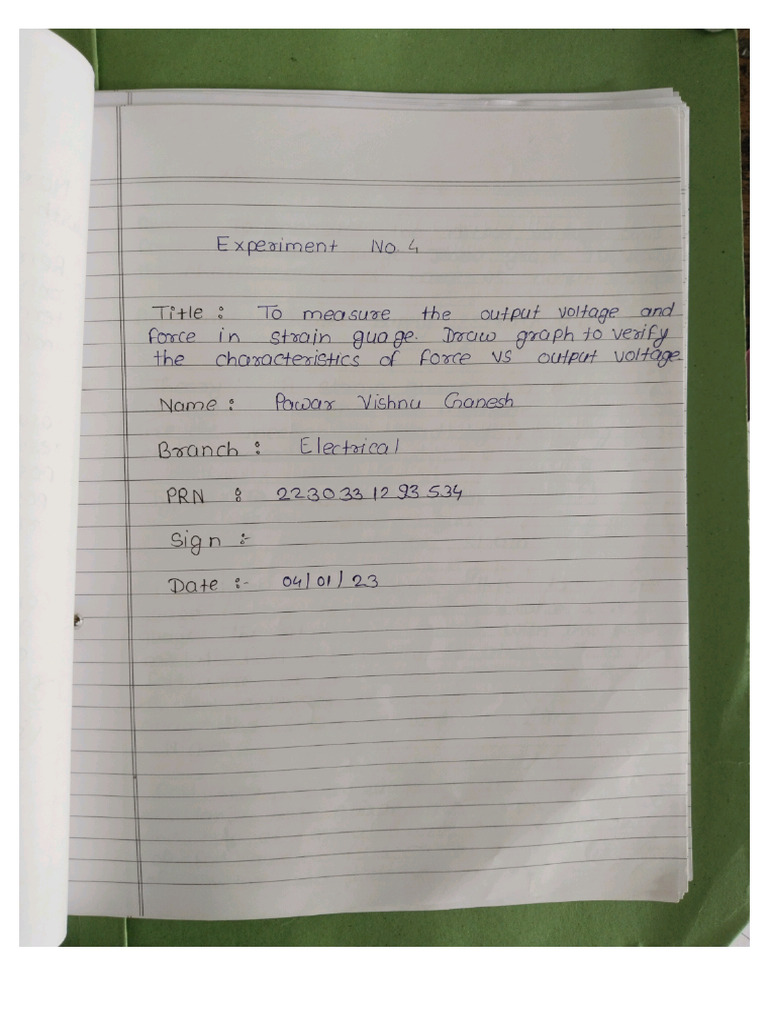 Experiment No. 4
Title : To measure the output voltage and
force in strain guage. Draw graph to verify
the characteristics of force vs output voltage
Name : Pawar Vishnu Ganesh
Branch : Electrical
PRN : 2230331293534
Sign :-
Date :- 04/01/23